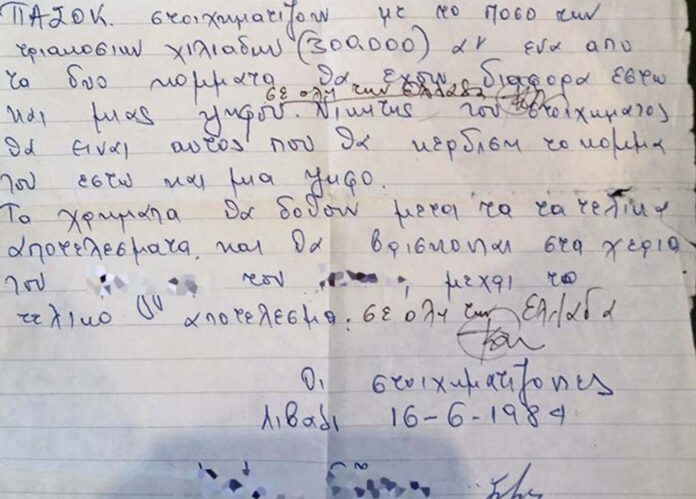 ΠΑΣΟΚ. στοιχηματιζουν με το ποσο των
τριακοσιων χιλιαδων (300.000) αν ενα απο
τα δυο κομματα θα εχουν διαφορα εστω
σε ολη την ελλαδα
και μιας ψηφου. Νικητης του στοιχηματος
θα ειναι αυτος που θα κερδιση το κομμα
του εστω και μια ψηφο.
Τα χρηματα θα δοθουν μετα τα τελικα
αποτελεσματα και θα βρισκονται στα χερια
του του , μεχρι το
τελικο αποτελεσμα. σε ολη την Ελλαδα
Οι στοιχηματιζοντες
Λιβαδι 16-6-1984